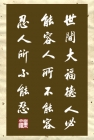 世間大福德人必
能容人所不能容
忍人所不能忍